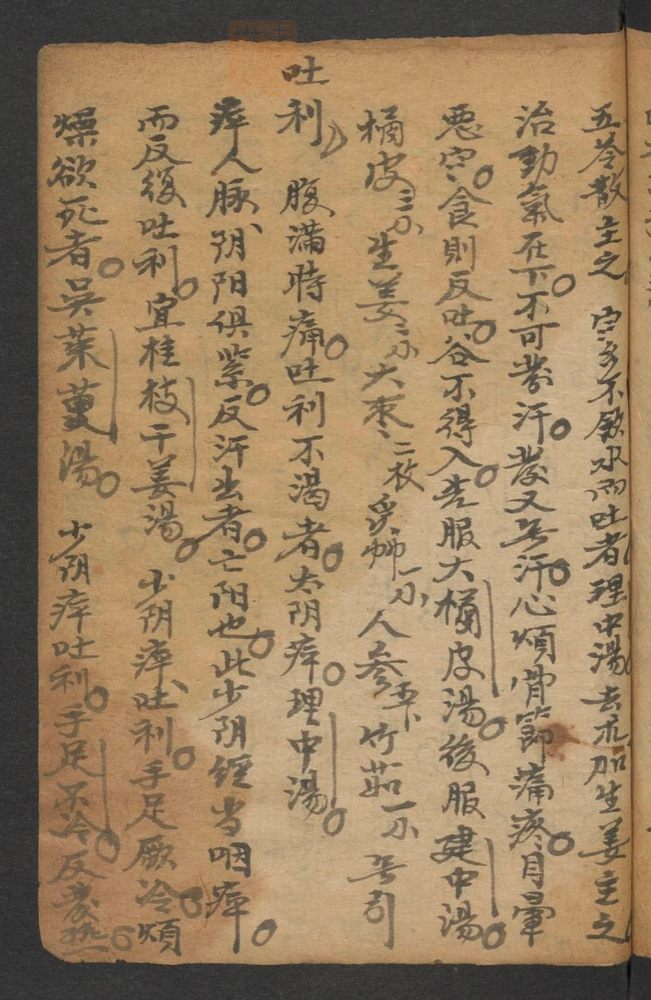 五苓散主之 寒多不飲水而吐者理中湯去朮加生姜主之
治動氣在下不可發汗發又無汗心煩骨節痛疼目暈
惡寒食則反吐谷不得入先服大橘皮湯後服建中湯
橘皮三小生姜二小大枣二枚炙艸一小人参五卜竹茹一小無引
吐利 腹滿時痛吐利不渴者太阴病理中湯
病人脉阴阳俱紧反汗出者亡阳也此少阴經当咽痛
而反復吐利宜桂枝干姜湯 少阴病吐利手足厥冷煩
燥欲死者吴茱萸湯 少阴病吐利手足不冷反發热